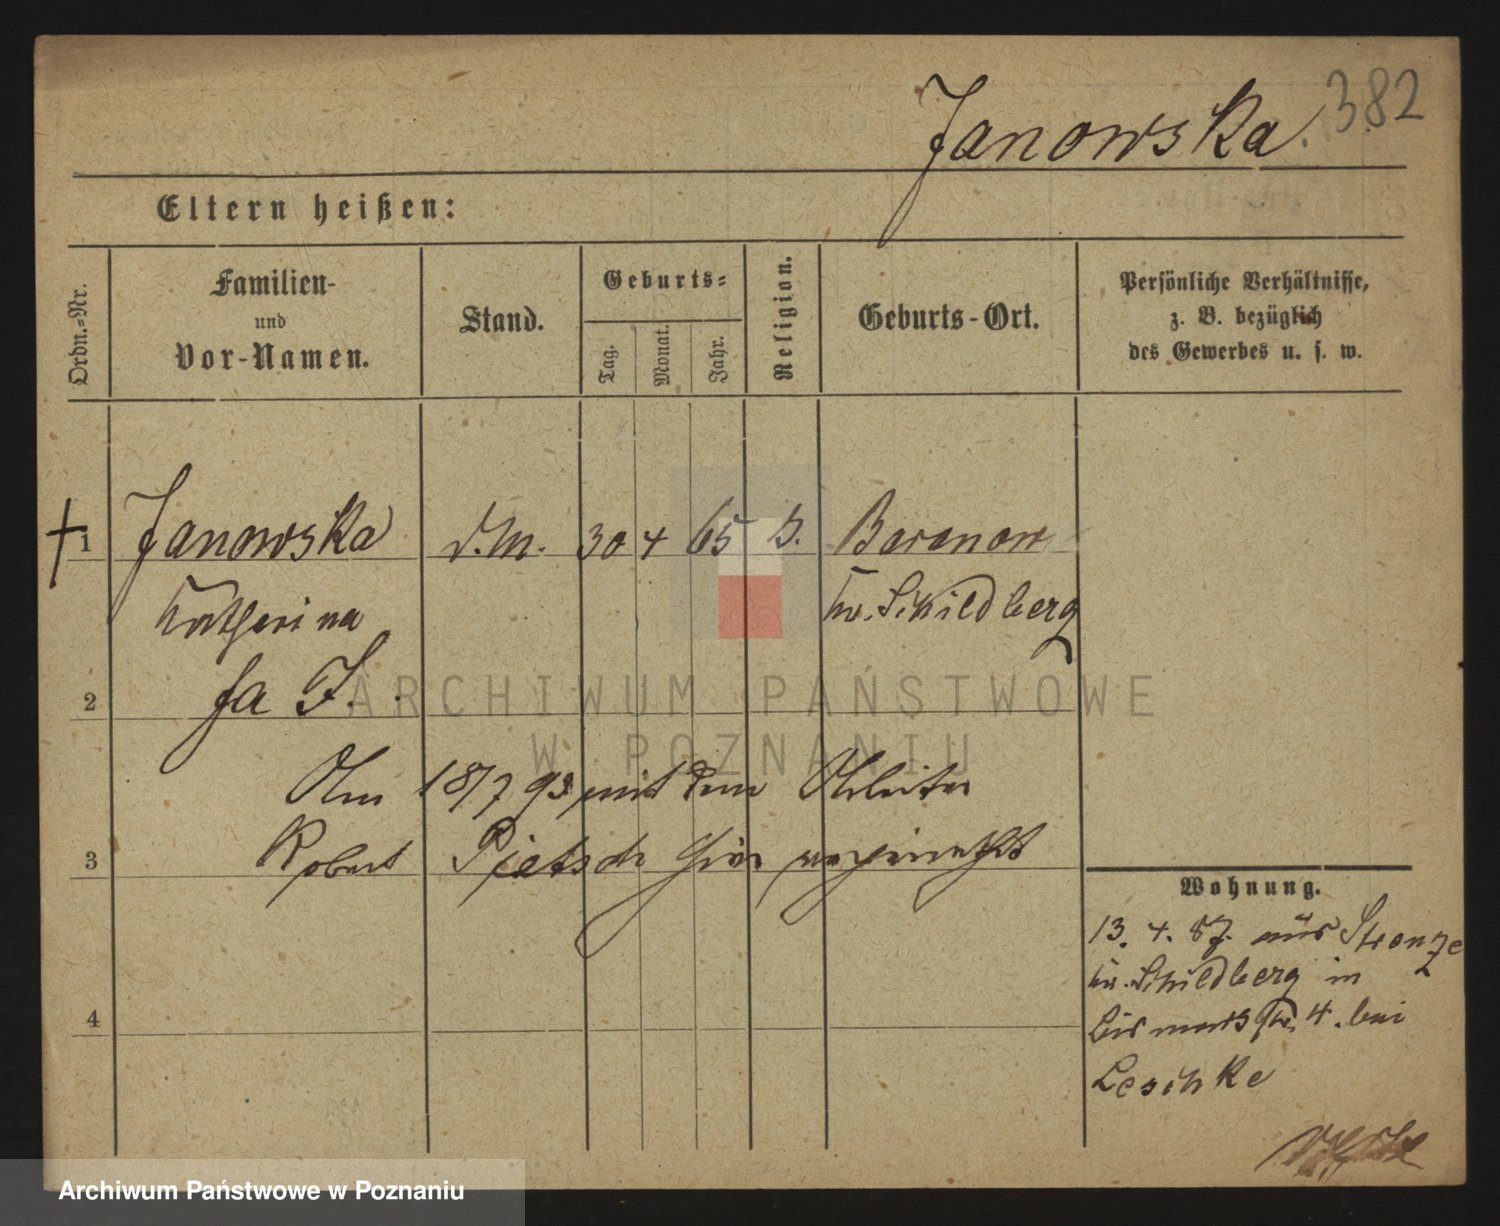 Janowska. 382
Eltern heißen:
Ordn.=Nr.
Familien-
und
Vor-Namen.
Stand.
Geburts=
Tag.
Monat.
Jahr.
Religion.
Geburts-Ort.
Persönliche Verhältnisse,
z. B. bezüglich
des Gewerbes u. s. w.
1 Janowska D.M. 30 4 65 Baranow
Katharina Kr. Schildberg
2
ARCHIWUM PAŃSTWOWE
W POZNANIU
Am 18/7 93 mit dem Arbeiter
3 Robert Pietsch hier
Wohnung.
13. 4. 87. aus Strenze
Kr. Schildberg in
4 Bismarckstr. 4. bei
Leschke
Archiwum Państwowe w Poznaniu